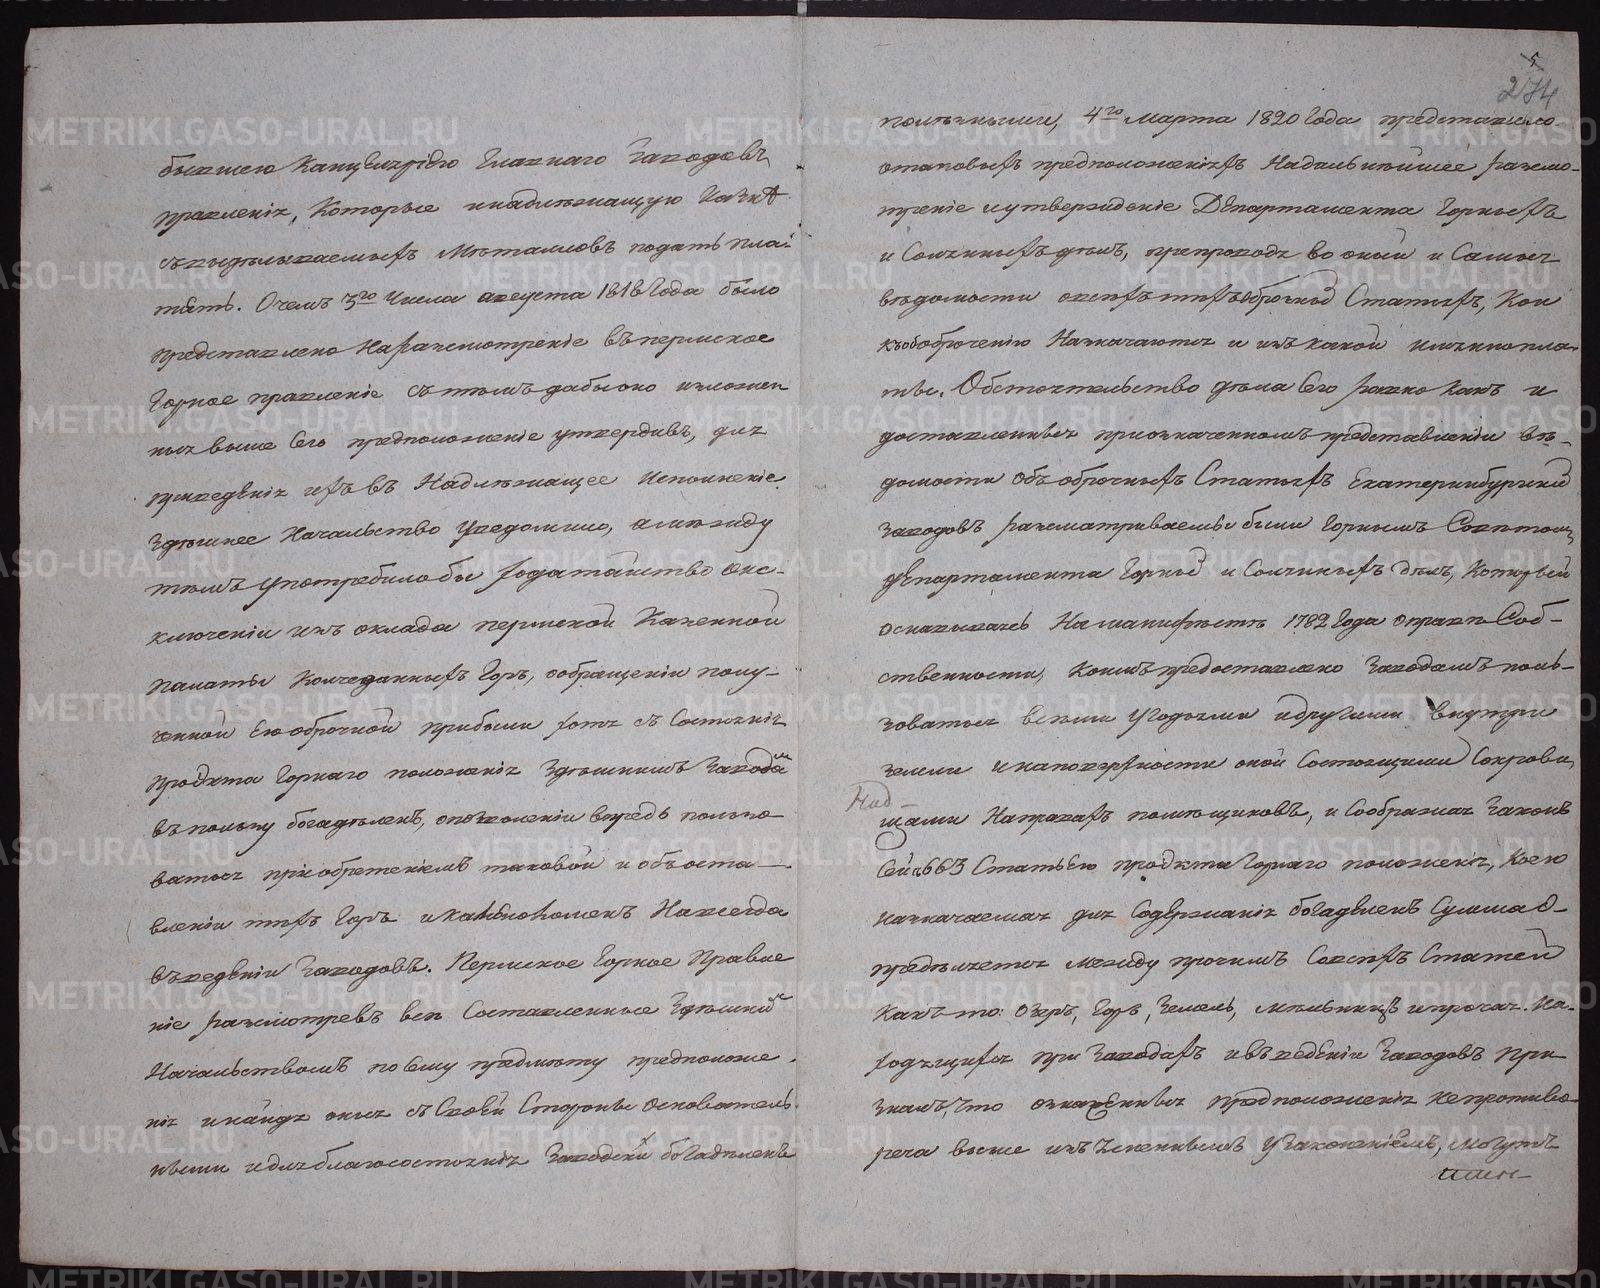 бывшею Канцеляріею Главнаго Заводовъ
правленія, Которые и надлежащую Казнѣ
съ выдѣлываемыхъ Металловъ подать пла-
тятъ. О чемъ 3го Числа августа 1818 Года было
представлено На разсмотреніе въ пермское
Горное правленіе съ тѣмъ дабы оно изложен
ныя выше Сего предположеніе утвердивъ, для
приведенія ихъ въ Надлежащее Исполненіе
Здѣшнее Начальство Уведомило, а между
тѣмъ употребило бы ходатайство о ис-
ключеніи изъ оклада пермской Казенной
Палаты Колчеданныхъ Горъ, о обращеніи полу-
ченной Ею оброчной прибыли хотя съ Состоянія
Проэкта Горнаго положенія Здѣшнимъ Заводамъ
въ пользу богадѣленъ, о позволеніи впредь пользо-
ватся пріобретеніемъ таковой и объ оста-
вленіи тѣхъ Горъ и каменоломенъ Навсегда
въ веденіи Заводовъ. Пермское Горное Правле
ніе разсмотревъ всѣ Составленные Здѣшнимъ
Начальствомъ по сему предмѣту предположе-
нія и найдя оныя съ Своей Стороны основатель-
ными и для благосостоянія Заводскихъ богадѣленъ
5
274
полезными, 4го Марта 1820 Года представило
о таковыхъ предположеніяхъ На дальнѣйшее разсмо-
треніе и утвержденіе Департамента Горныхъ
и Соляныхъ дѣлъ, препроводя во оный и Самыя
вѣдомости о всѣхъ тѣхъ оброчныхъ Статьяхъ, Кои
къ обоброченію Назначаются и изъ какой имянно пла-
ты. Обстоятельство дѣла Сего равно Какъ и
доставленныя при означенномъ представленіи вѣ-
домости объ оброчныхъ Статьяхъ Екатеринбургскихъ
Заводовъ разсматриваемы были Горнымъ Совѣтомъ
департамента Горныхъ и Соляныхъ Дѣлъ, Который
основываясь На манифестѣ 1782 Года о правѣ Соб-
ственности, Коимъ предоставлено Заводамъ поль-
зоватся всѣми Угодьями и другими внутри
Земли и на поверхности оной Состоящими Сокрови-
щами На правахъ помѣщиковъ, и Соображая Законъ
Сей съ 663 Статьею проэкта Горнаго положенія, Коею
назначаемая для Содержанія богаделенъ Сумма о-
предѣляется между прочимъ Со всѣхъ Статей
Какъ то: озеръ, Горъ, Земель, мѣльницъ и прочая. На-
ходящихся при Заводахъ и въ веденіи Заводовъ При
зналъ, что означенныя предположенія не противо-
реча выше изъясненнымъ Узаконеніемъ, могутъ